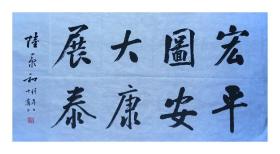 宏圖大展
平安康泰
陸永和